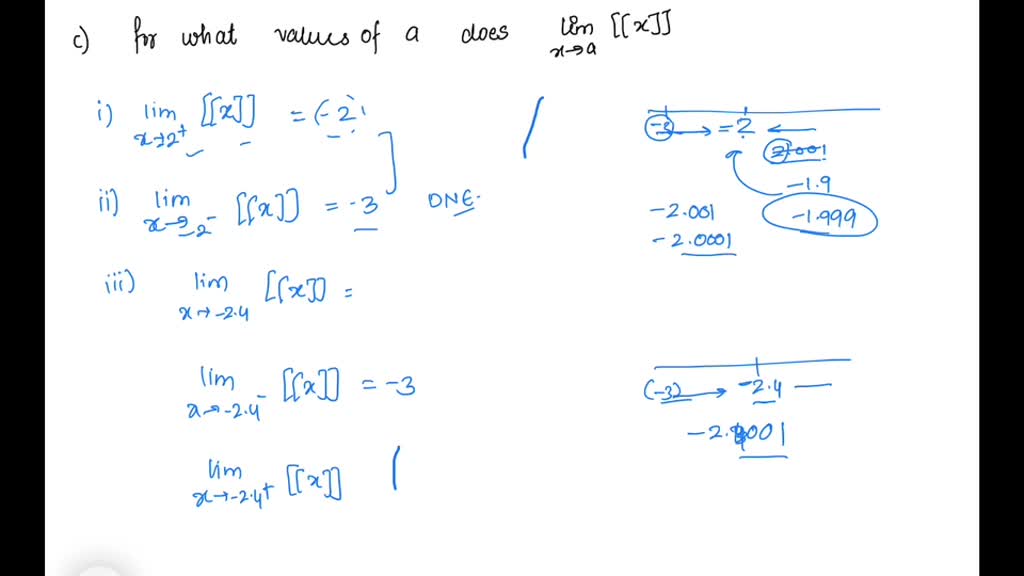 c) for what values of a does lim [[x]]
x→a
i) lim [[x]] = (-2)
x→2⁺
ii) lim [[x]] = -3 DNE.
x→-2⁻
iii) lim [[x]] =
x→-2.4
lim [[x]] = -3
x→-2.4⁻
lim [[x]] (
x→-2.4⁺
-3 → =2 ←
2.001
-1.9
-2.001 -1.999
-2.0001
(-3) → -2.4